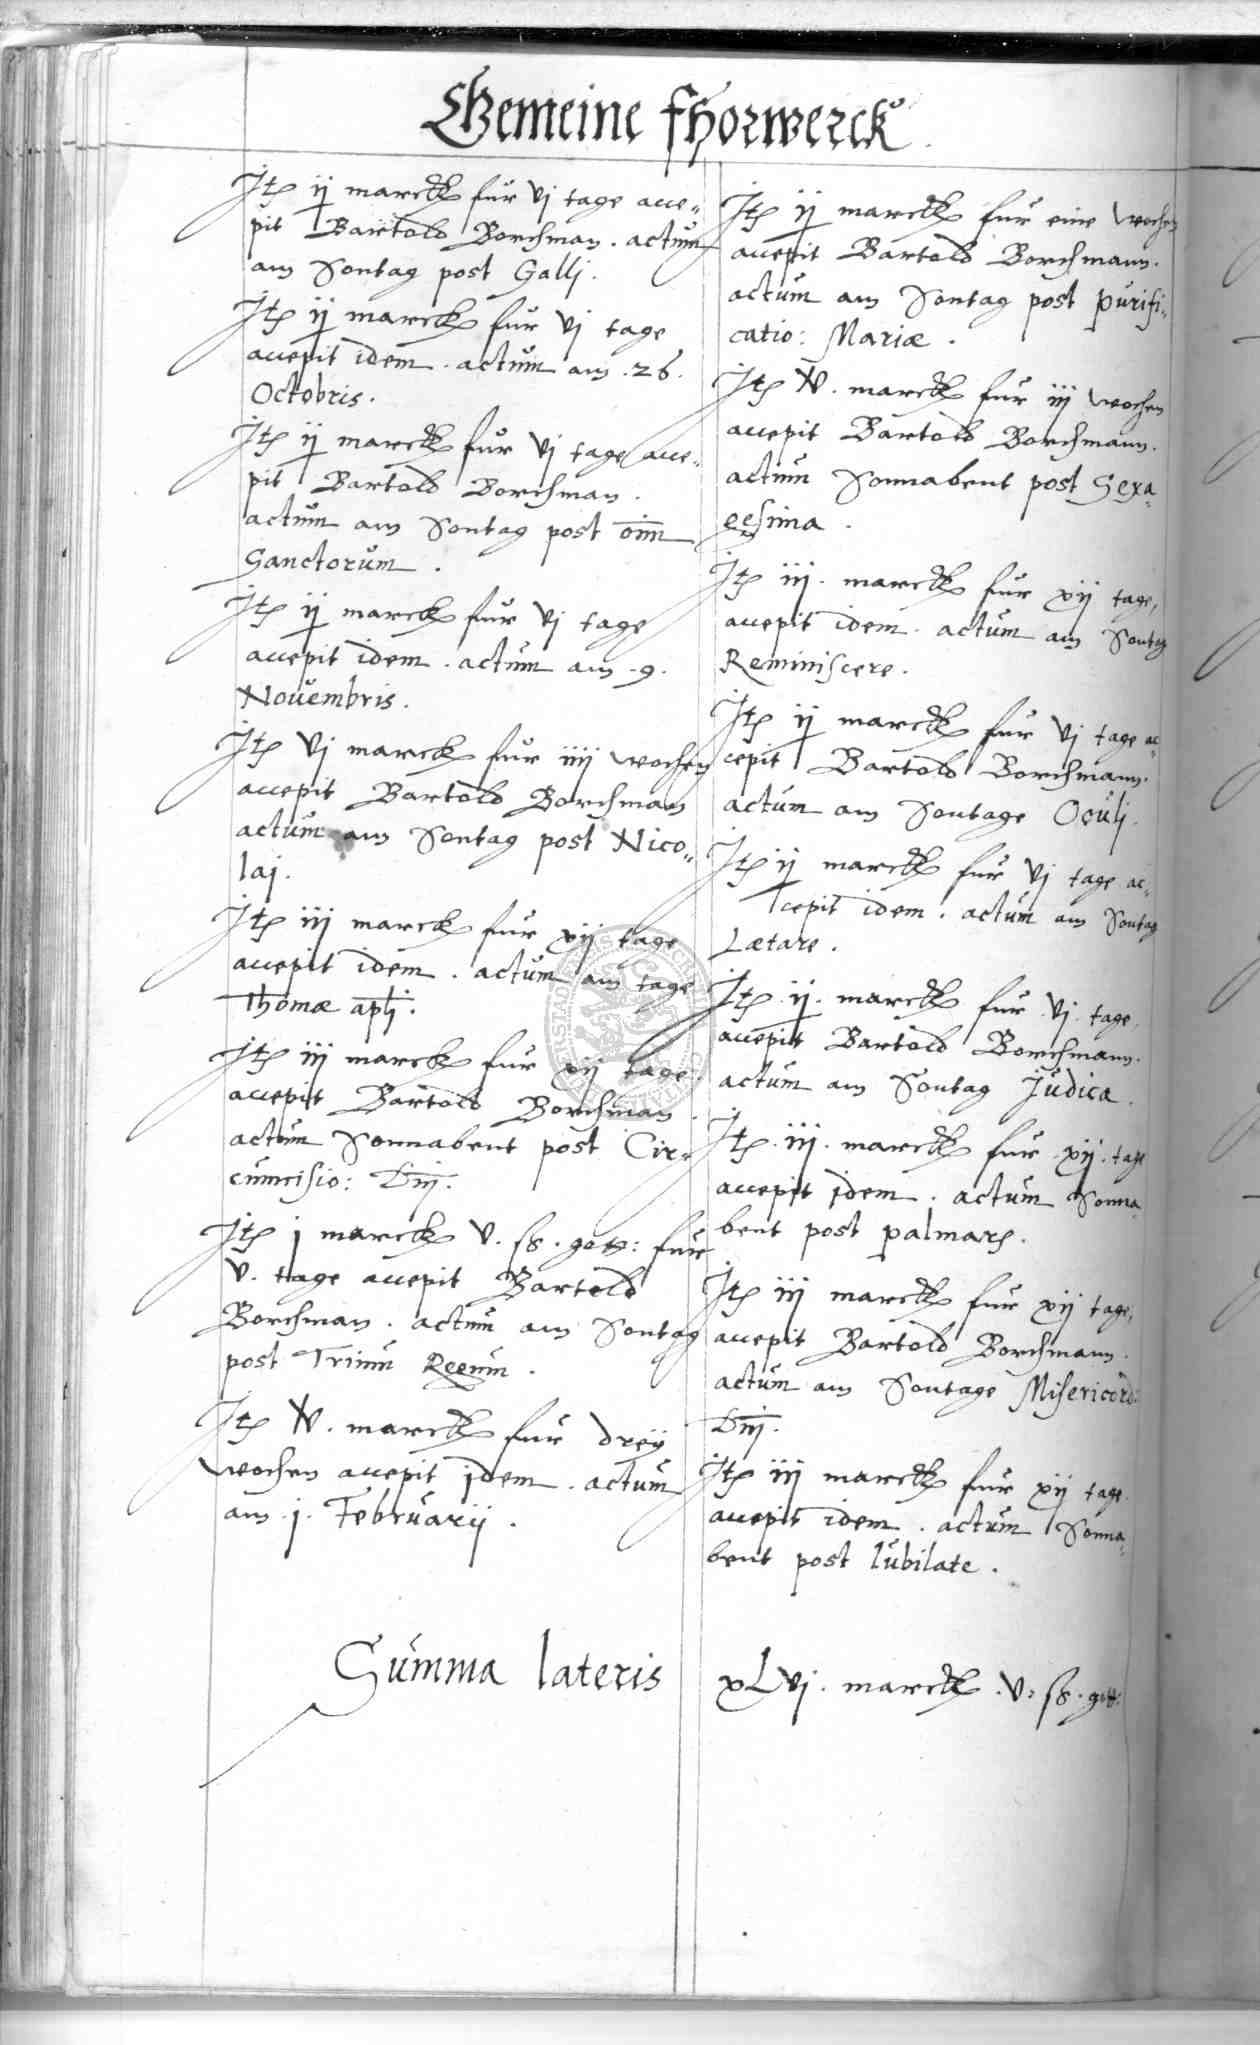 Gemeine fhorwerck
Jtem ij marck fur vj tage acce-
pit Bartold Borchman. actum
am Sontag post Gallj.
Jtem ij marck fur vj tage
accepit idem. actum am .26.
Octobris.
Jtem ij marck fur vj tage acce-
pit Bartold Borchman.
actum am Sontag post oim
Sanctorum.
Jtem ij marck fur vj tage
accepit idem. actum am .9.
Novembris.
Jtem vj marck fur iiij wochen
accepit Bartold Borchman
actum am Sontag post Nico-
laj.
Jtem iij marck fur xij tage
accepit idem. actum am tage
Thomæ apli.
Jtem iij marck fur xij tage
accepit Bartold Borchman.
actum Sonnabent post Cir-
cumcisio: Dnj.
Jtem j marck v. ss. gott: fur
v. tage accepit Bartold
Borchman. actum am Sontag
post Trium Regum.
Jtem v. marck fur drey
wochen accepit idem. actum
am .j. Februarij.
Jtem ij marck fur eine wochen
accepit Bartold Borchmann.
actum am Sontag post purifi-
catio: Mariæ.
Jtem v. marck fur iij wochen
accepit Bartold Borchmann.
actum Sonnabent post Sexa-
gesima.
Jtem iij. marck fur xij tage,
accepit idem. actum am Sontag
Reminiscere.
Jtem ij marck fur vj tage ac-
cepit Bartold Borchmann.
actum am Sontage Oculj.
Jtem ij marck fur vj tage ac-
cepit idem. actum am Sontag
Lætare.
Jtem .ij. marck fur .vj. tage,
accepit Bartold Borchmann.
actum am Sontag Judica.
Jtem .iij. marck fur .xij. tage
accepit idem. actum Sonna-
bent post palmarum.
Jtem iij marck fur xij tage,
accepit Bartold Borchmann.
actum am Sontage Misericord:
Dnj.
Jtem iij marck fur xij tage.
accepit idem. actum Sonna-
bent post Iubilate.
Summa lateris xLvj. marck .v. ss. gott: